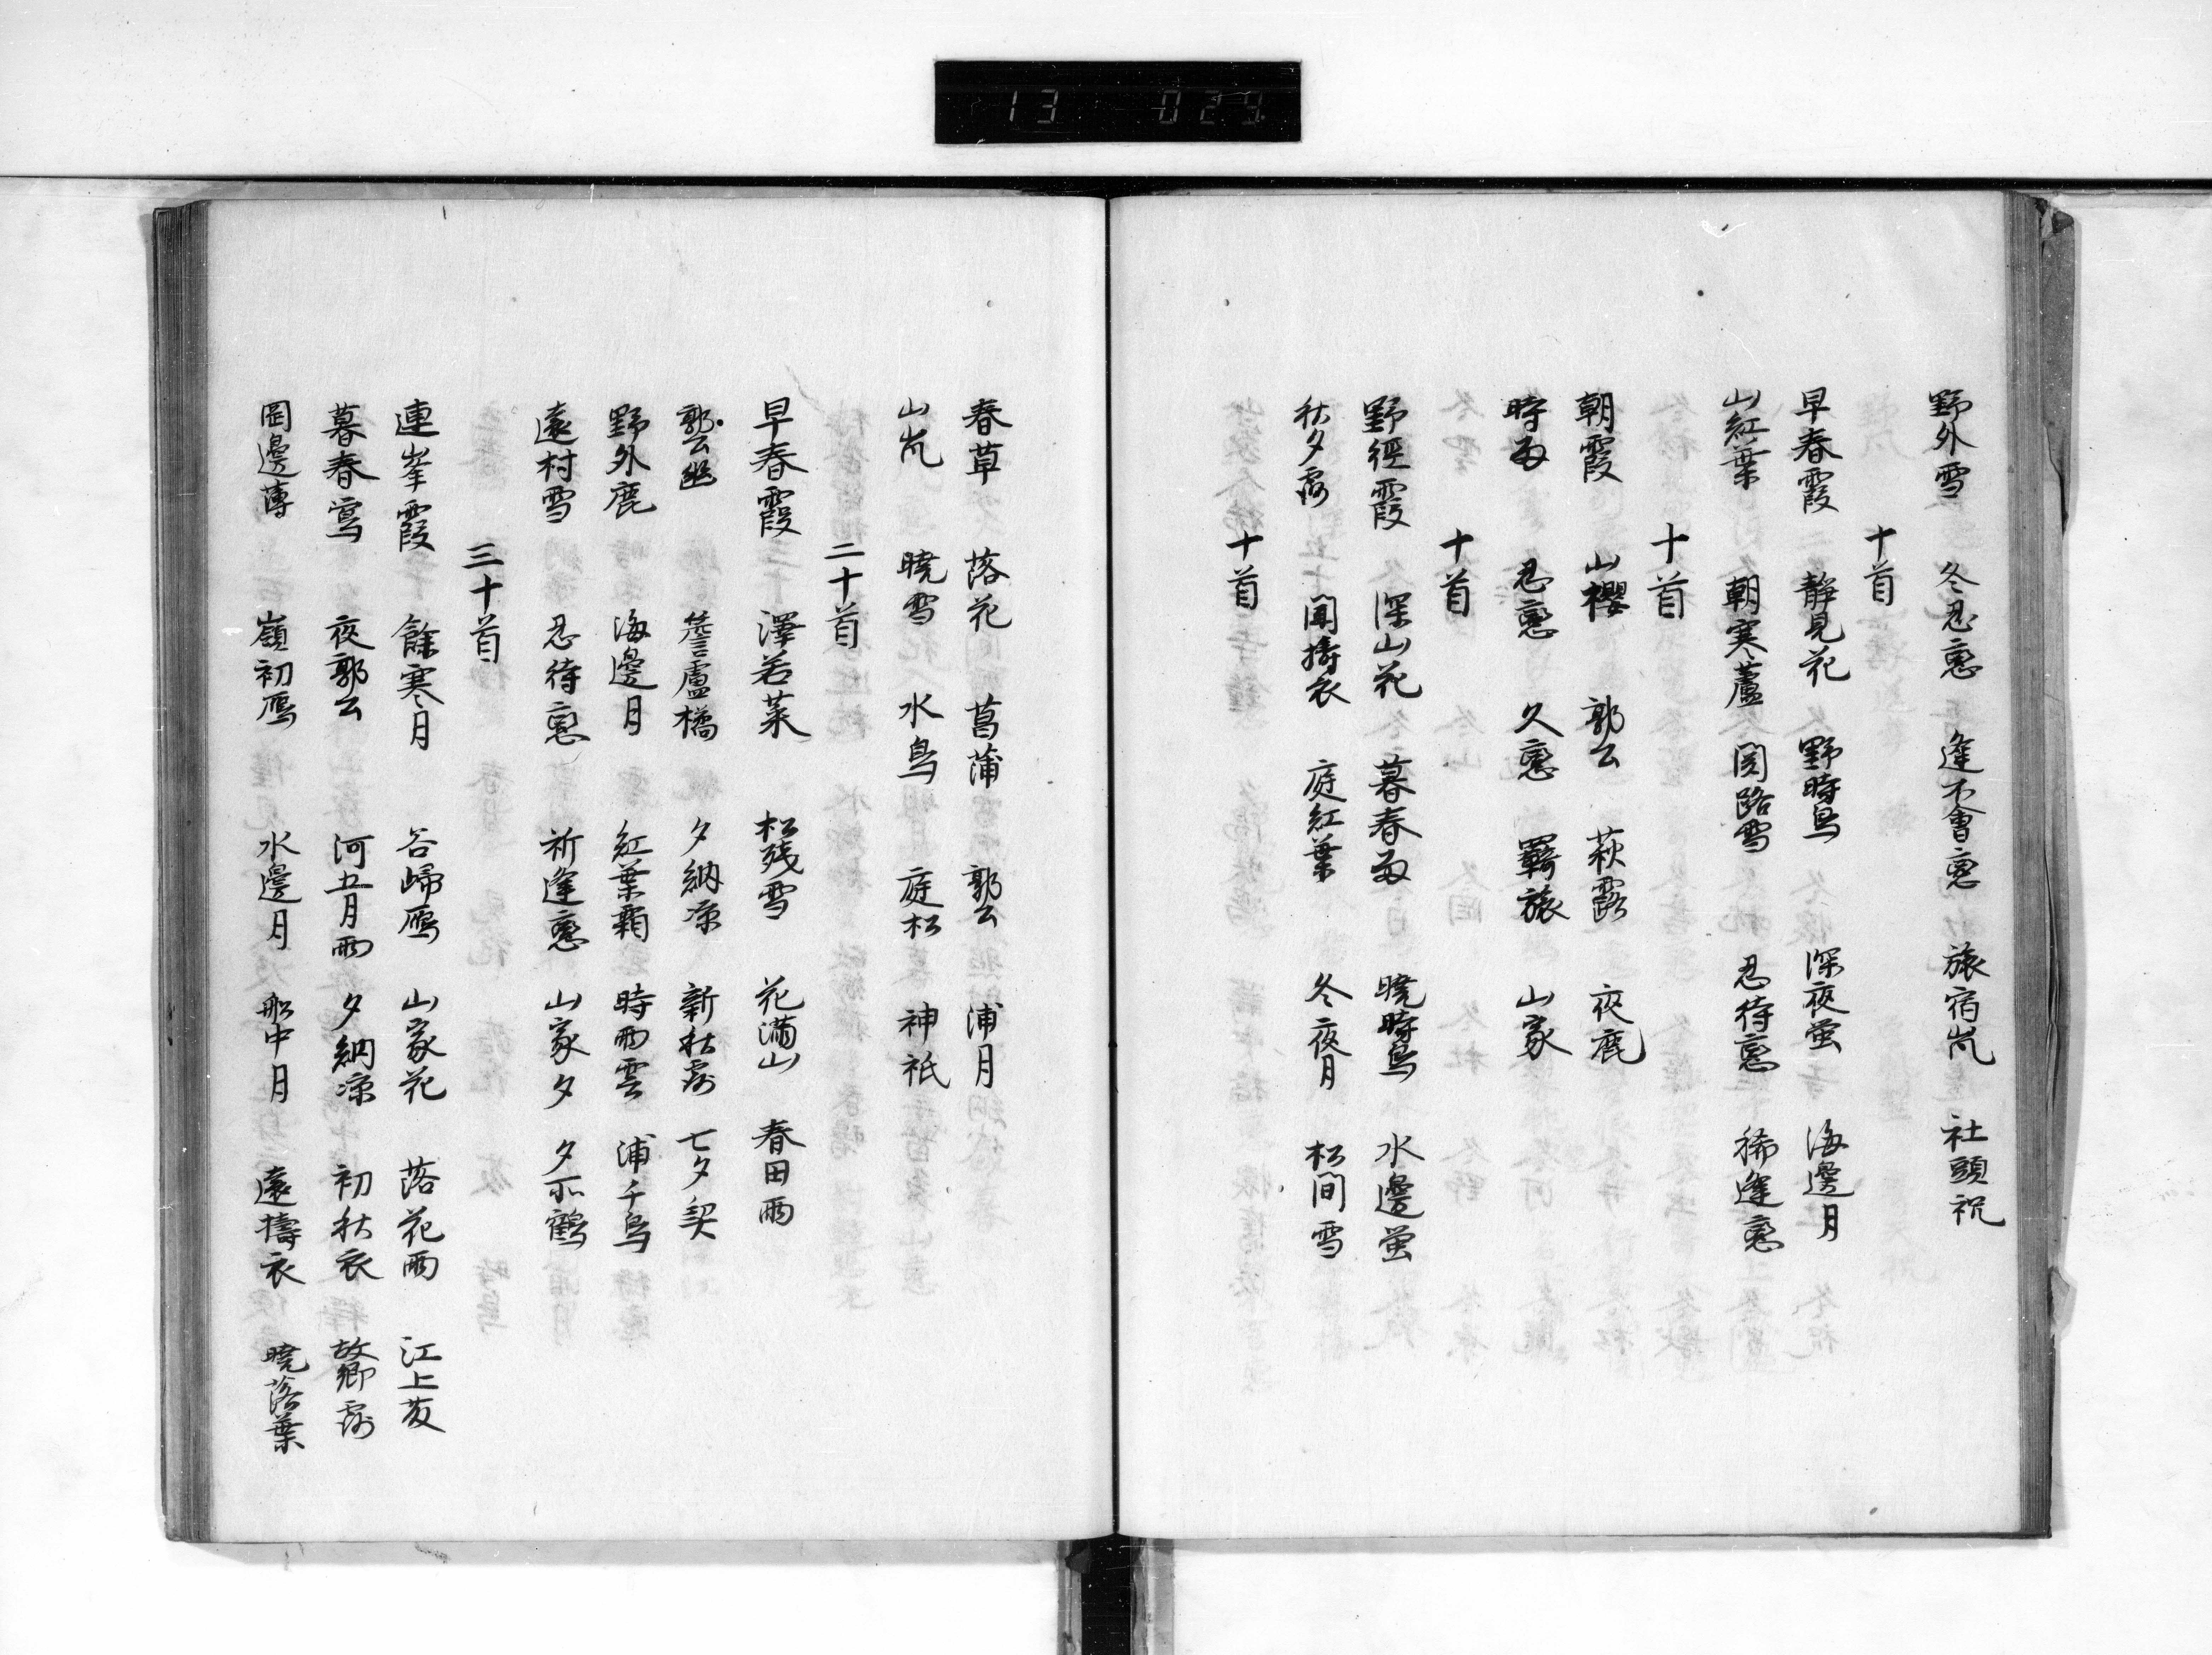 13 029
野外雪 冬忍戀 逢不會戀 旅宿嵐 社頭祝
十首
早春霞 静見花 野時鳥 深夜蛍 海邊月
山紅葉 朝寒蘆 関路雪 忍待戀 稀逢戀
十首
朝霞 山櫻 郭公 萩露 夜鹿
時雨 忍戀 久戀 羇旅 山家
十首
野徑霞 深山花 暮春雨 曉時鳥 水邊蛍
秋夕露 聞擣衣 庭紅葉 冬夜月 松間雪
十首
春草 落花 菖蒲 郭公 浦月
山嵐 曉雪 水鳥 庭松 神祇
二十首
早春霞 澤若菜 松残雪 花満山 春田雨
郭公幽 簷盧橘 夕納凉 新秋露 七夕契
野外鹿 海邊月 紅葉霜 時雨雲 浦千鳥
遠村雪 忍待戀 祈逢戀 山家夕 夕
鶴
三十首
連峯霞 餘寒月 谷歸鴈 山家花 落花雨 江上
暮春鶯 夜郭公 河五月雨 夕納凉 初秋衣 故郷露
岡邊薄 嶺初鴈 水邊月 船中月 遠擣衣 曉落葉